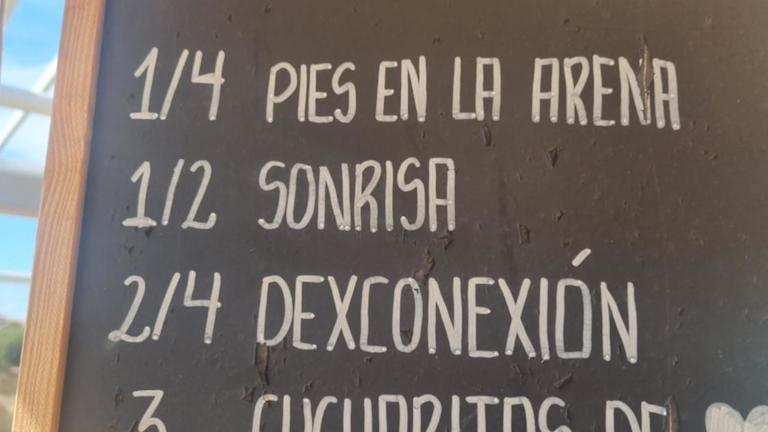 1/4 PIES EN LA ARENA
1/2 SONRISA
2/4 DEXCONEXIÓN
3 CUCHARITAS DE